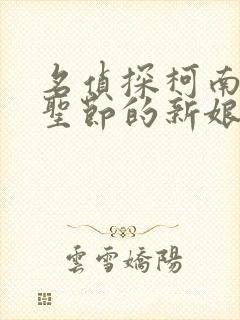 名偵探柯南
聖節的新娘
雲雪嬌陽